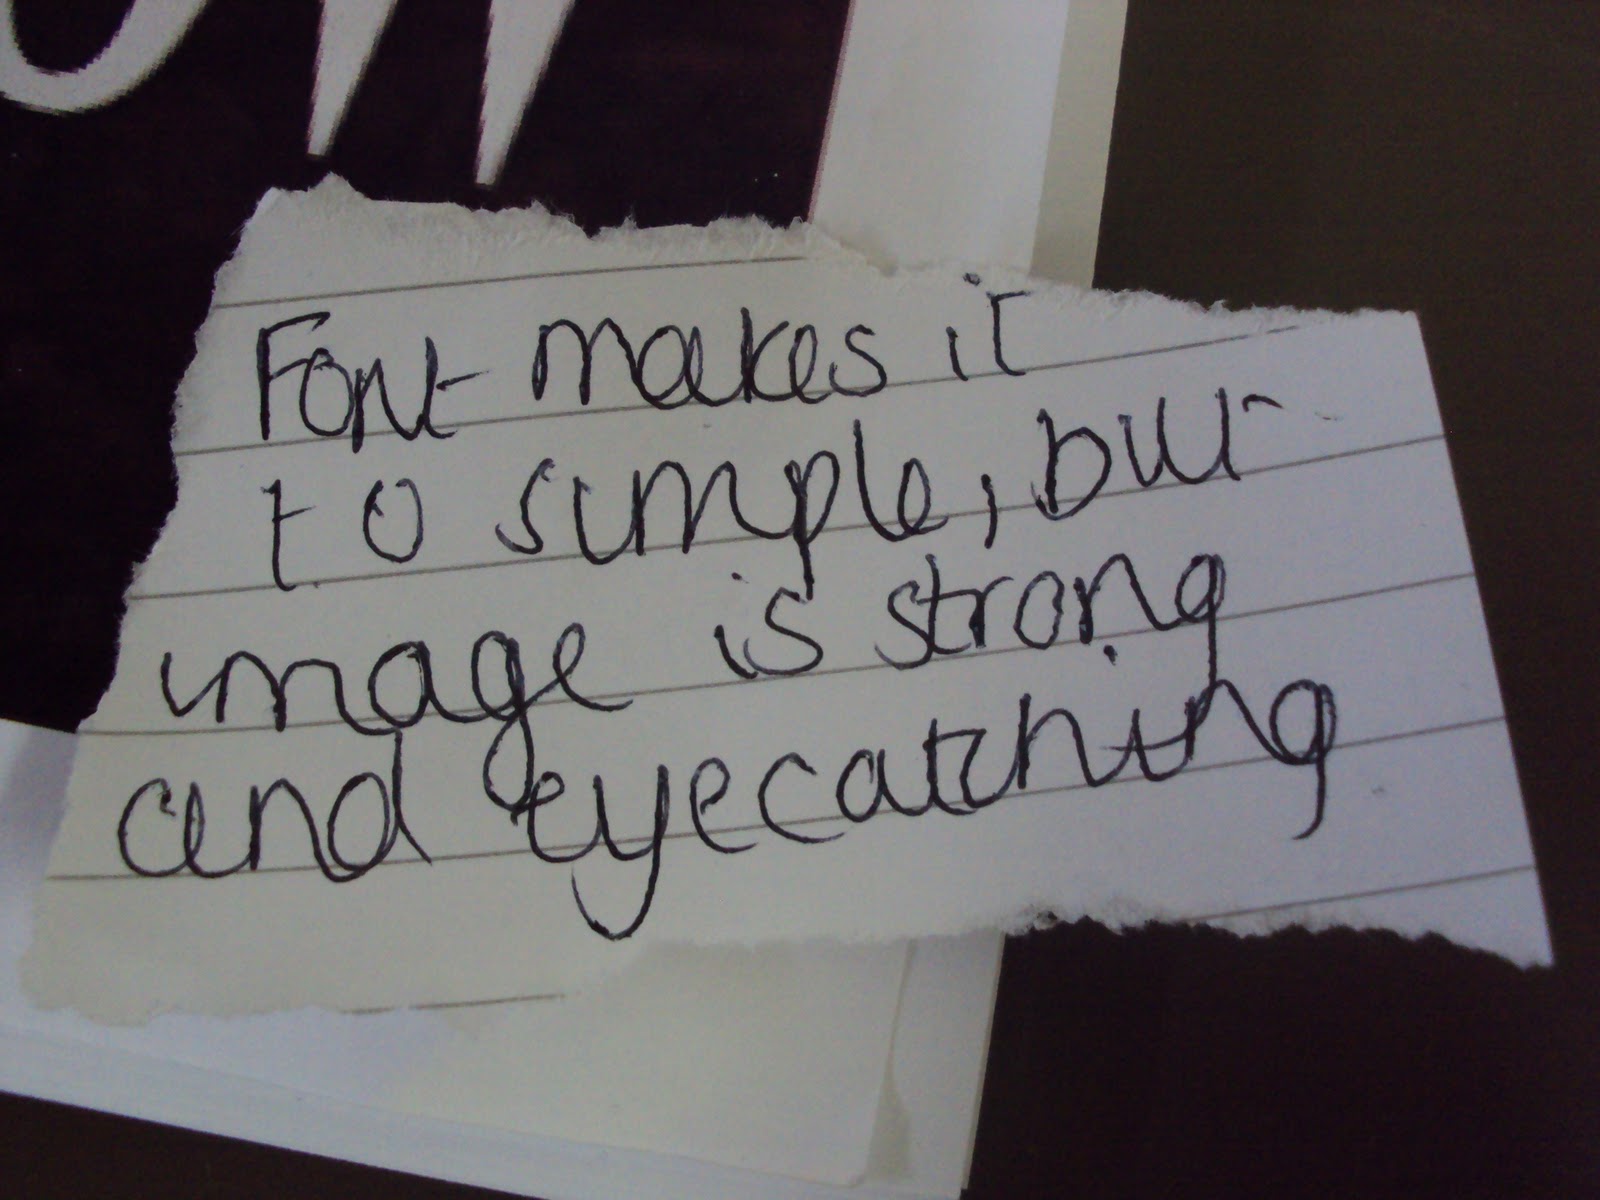 Font makes it
to simple, but
image is strong
and eyecatching